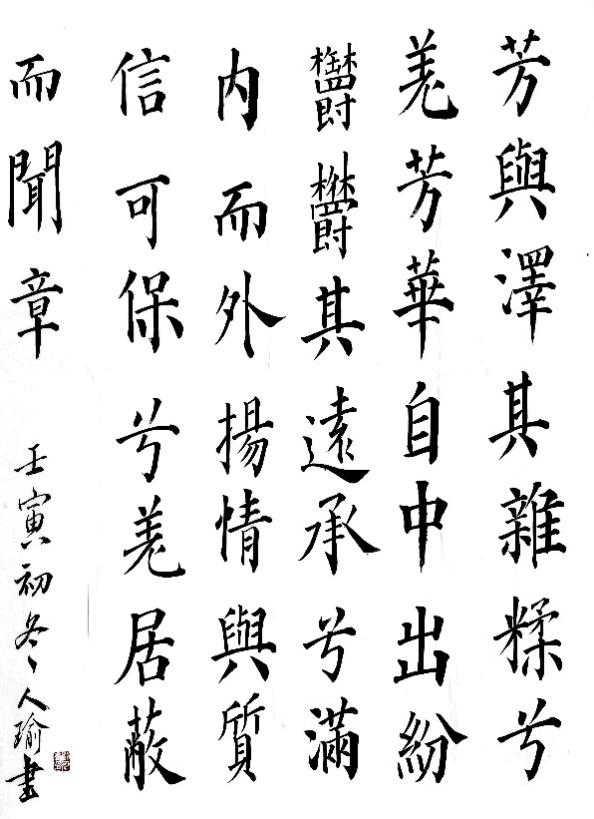 芳與澤其雜糅兮
羌芳華自中出紛
鬱鬱其遠承兮滿
内而外揚情與質
信可保兮羌居蔽
而聞章
壬寅初冬人瑜書